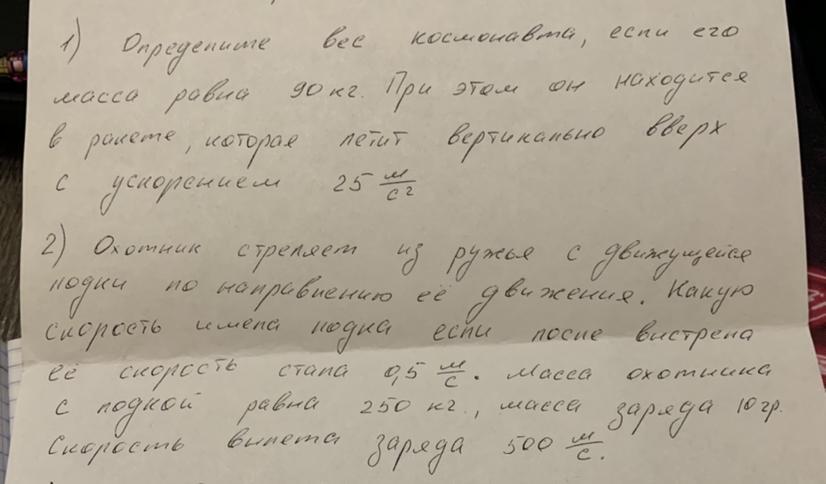 1) Определите вес космонавта, если его
масса равна 90 кг. При этом он находится
в ракете, которая летит вертикально вверх
с ускорением 25 м/с²
2) Охотник стреляет из ружья с движущейся
лодки по направлению её движения. Какую
скорость имела лодка если после вистрела
её скорость стала 0,5 м/с. Масса охотника
с лодкой равна 250 кг., масса заряда 10 гр.
Скорость вылета заряда 500 м/с.